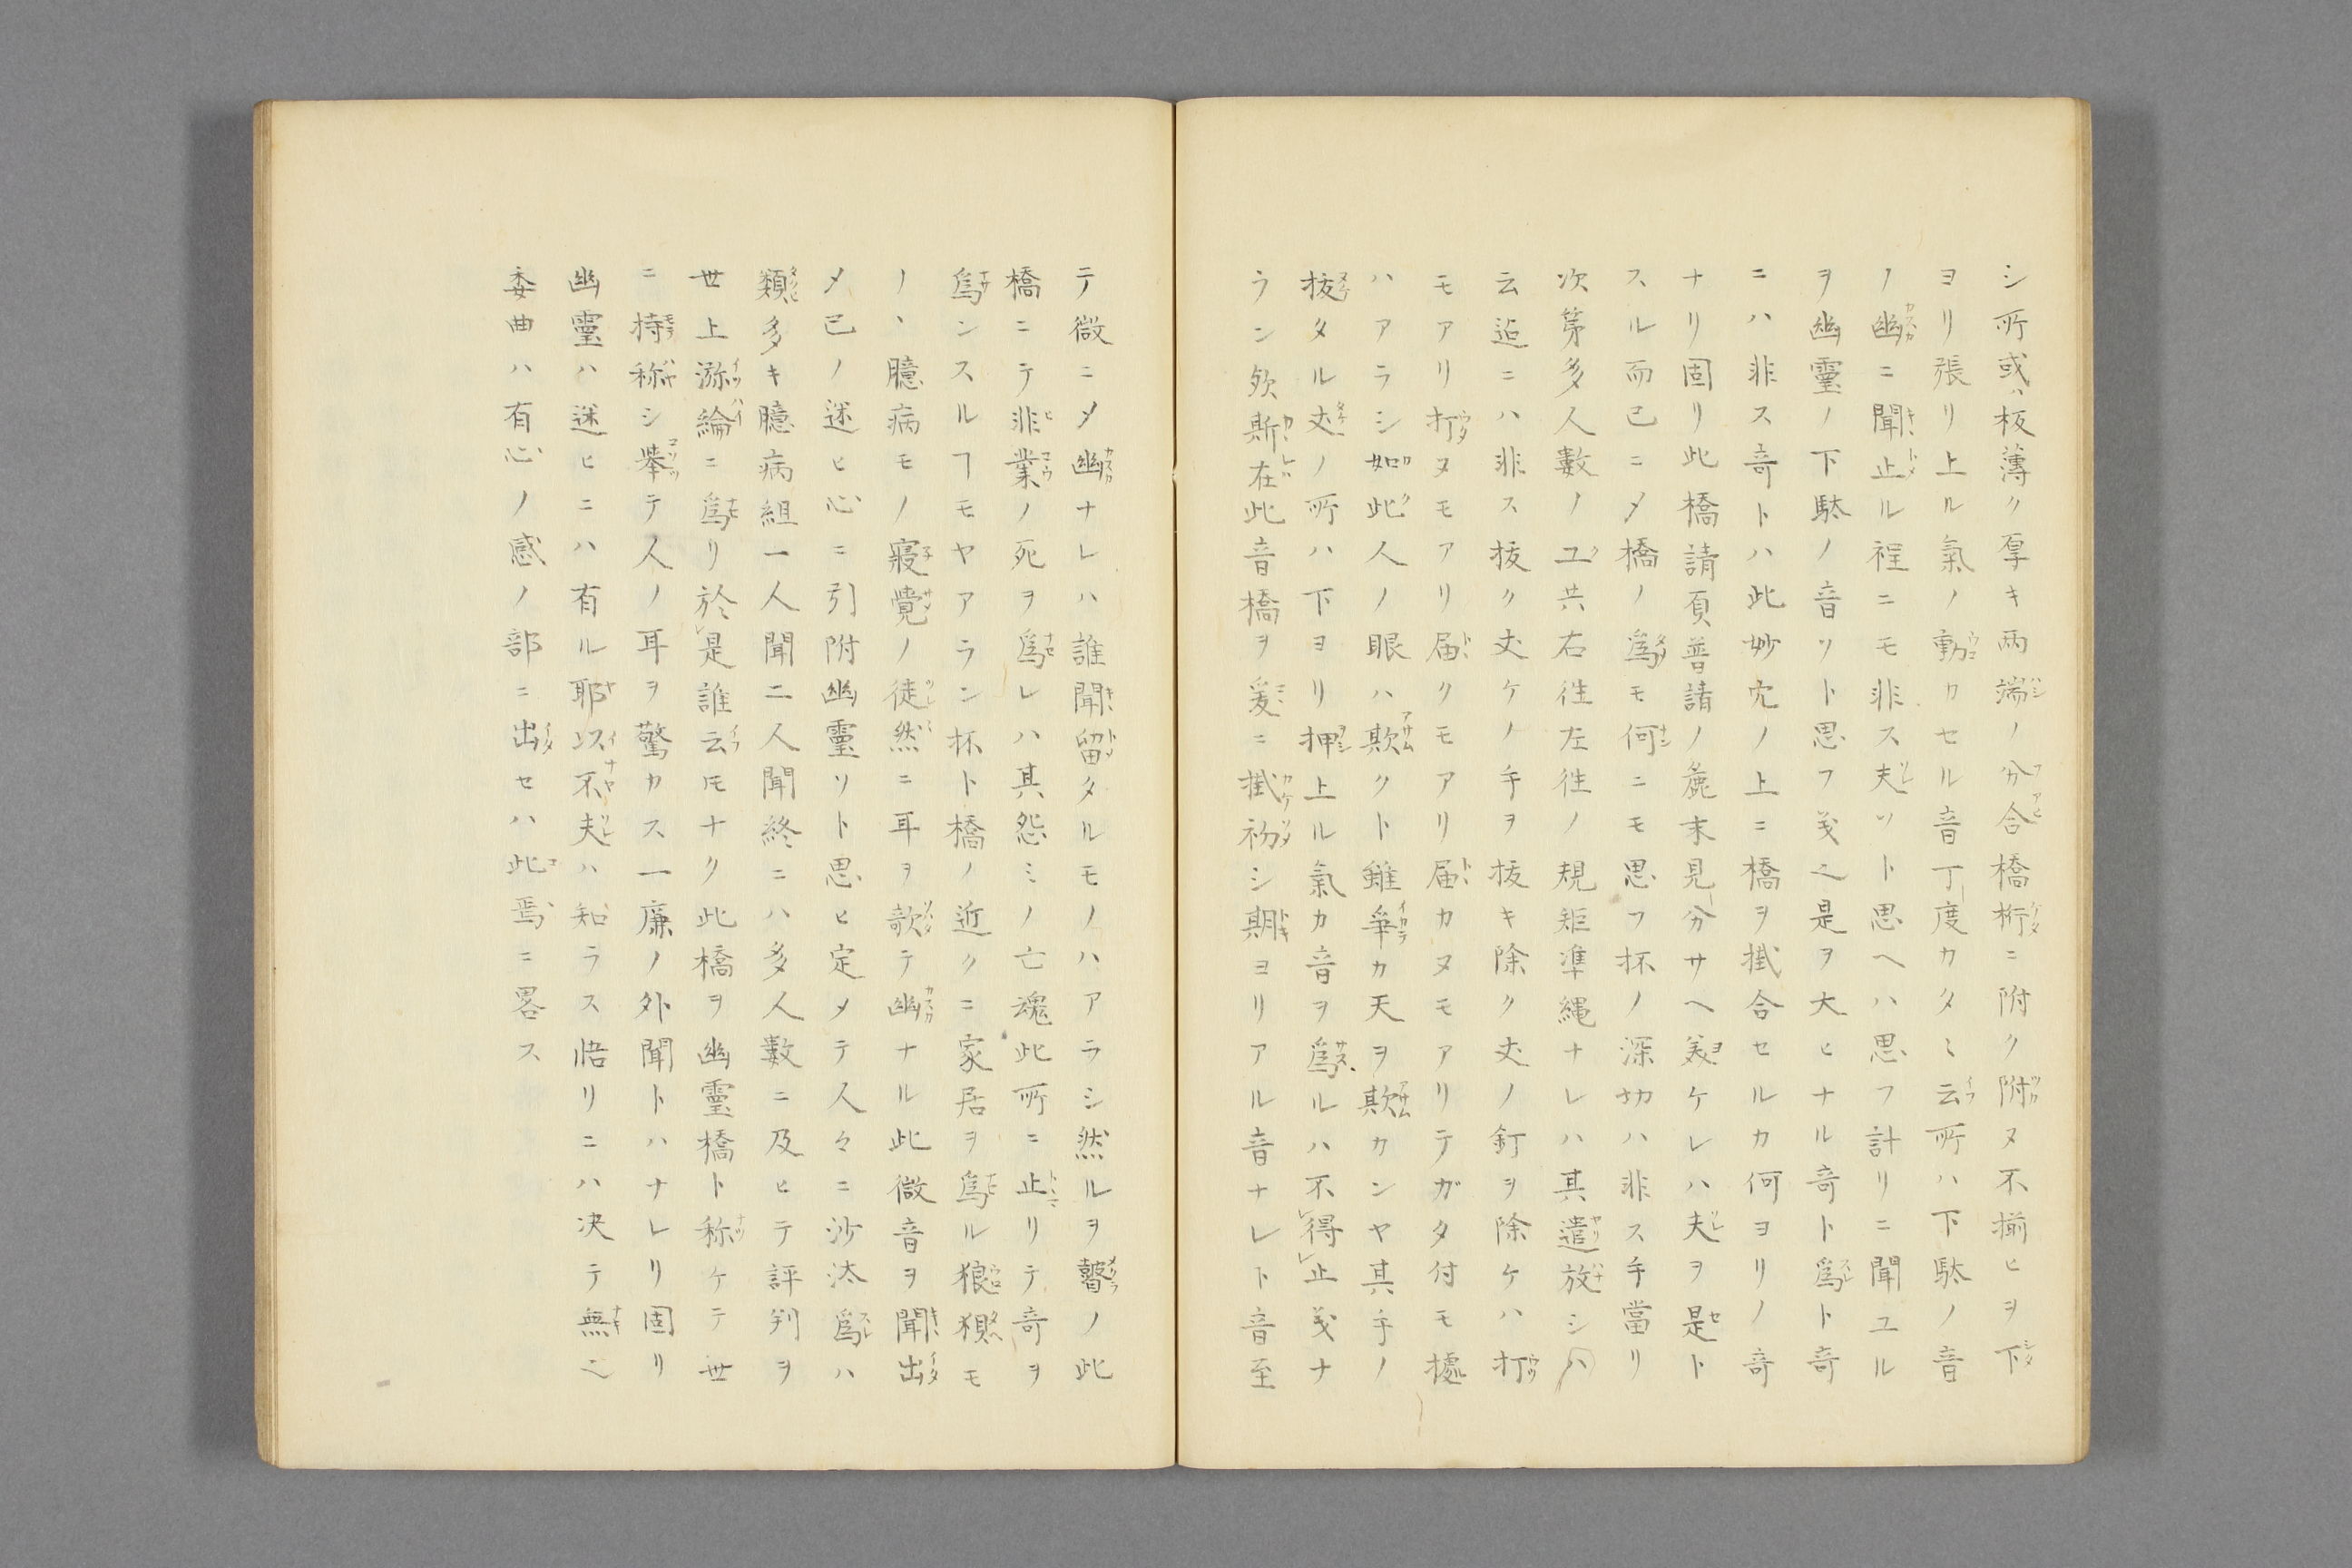 シ所或ハ板薄ク厚キ両端ノ分合橋桁ニ附ク附ヌ不揃ヒヲ下
ヨリ張リ上ル氣ノ動カセル音丁度カタミ云所ハ下駄ノ音
ノ幽ニ聞止ル程ニモ非ス夫ソト思ヘハ思フ計リニ聞ユル
ヲ幽霊ノ下駄ノ音ソト思フ義之是ヲ大ヒナル竒ト為ト竒
ニハ非ス竒トハ此妙穴ノ上ニ橋ヲ掛合セルカ何ヨリノ竒
ナリ固リ此橋請負普請ノ麁末見分サヘ美ケレハ夫ヲ是ト
スル而已ニメ橋ノ為モ何ニモ思フ抔ノ深切ハ非ス手當リ
次第多人數ノ工共右往左往ノ規矩準縄ナレハ其遣放シハ
云迠ニハ非ス抜ク丈ケノ手ヲ抜キ除ク丈ノ釘ヲ除ケハ打
モアリ打ヌモアリ届クモアリ届カヌモアリテガタ付モ據
ハアラシ如此人ノ眼ハ欺クト雖争カ天ヲ欺カンヤ其手ノ
抜タル丈ノ所ハ下ヨリ押上ル氣カ音ヲ為ルハ不得止義ナ
ラン欤斯在此音橋ヲ爰ニ掛初シ期ヨリアル音ナレト音至
テ微ニメ幽ナレハ誰聞留タルモノハアラシ然ルヲ瞽ノ此
橋ニテ非業ノ死ヲ為レハ其怨ミノ亡魂此所ニ止リテ竒ヲ
為ンスルヿモヤアラン抔ト橋ノ近クニ家居ヲ為ル狼狽モ
ノヽ臆病モノ寢覺ノ徒然ニ耳ヲ欹テ幽ナル此微音ヲ聞出
メ已ノ迷ヒ心ニ引附幽靈ソト思ヒ定メテ人々ニ沙汰為ハ
類多キ臆病組一人聞二人聞終ニハ多人數ニ及ヒテ評判ヲ
世上渤綸ニ為リ於是誰云モナク此橋ヲ幽靈橋ト称ケテ世
ニ持称シ挙テ人ノ耳ヲ驚カス一廉ノ外聞トハナレリ固リ
幽靈ハ迷ヒニハ有ル耶以不夫ハ知ラス悟リニハ决テ無之
委曲ハ有心ノ感ノ部ニ出セハ此焉ニ畧ス